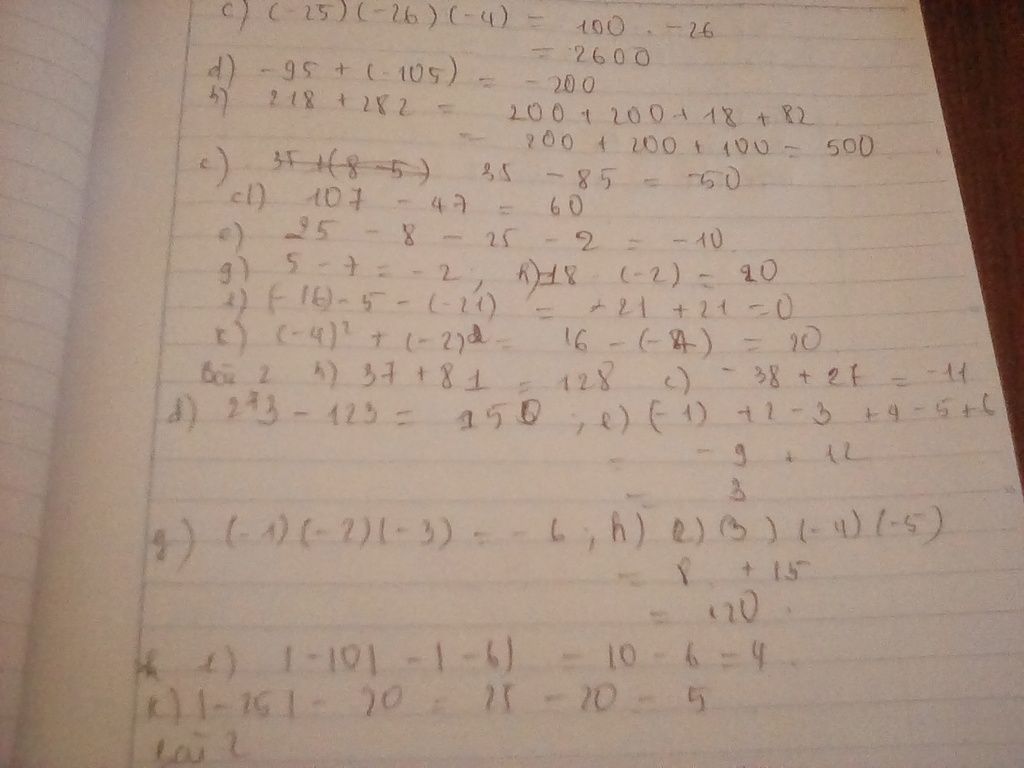 c) (-25)(-26)(-4) = 100 . -26
= 2600
d) -95 + (-105) = -200
b) 218 + 282 = 200 + 200 + 18 + 82
= 200 + 200 + 100 = 500
c) 35 - 85 = -50
d) 107 - 47 = 60
e) 25 - 8 - 25 - 2 = -10
g) 5 - 7 = -2 ; h) 18 - (-2) = 20
i) (-16) - 5 - (-21) = -21 + 21 = 0
k) (-4)² + (-2)² = 16 - (-4) = 20
Bài 2 b) 37 + 81 = 128 c) -38 + 27 = -11
d) 273 - 123 = 150 ; e) (-1) + 2 - 3 + 4 - 5 + 6
= -9 + 12
= 3
g) (-1)(-2)(-3) = -6 ; h) 2)(3)(-4)(-5)
= 8 + 15
= 120.
i) |-10| - |-6| = 10 - 6 = 4
k) |-25| - 20 = 25 - 20 = 5
Bài 2